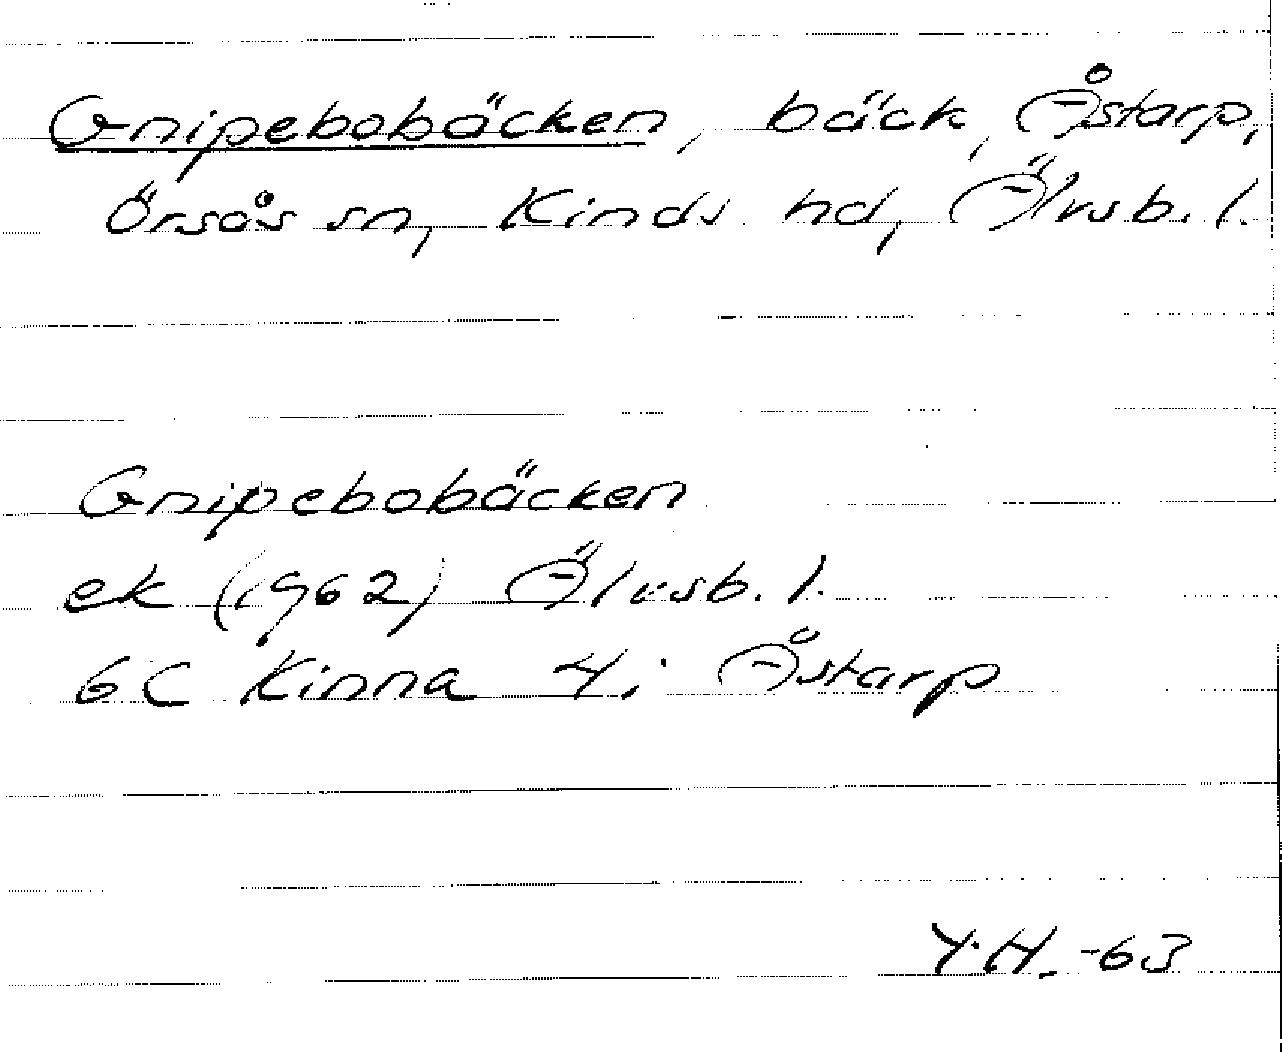 Gnipebobäcken, bäck, Åstarp,
Örsås sn, Kinds hd, Älvsb. l.
Gnipebobäcken
ek (1962) Älvsb. l.
6C Kinna 4; Åstarp
Y.H. -63